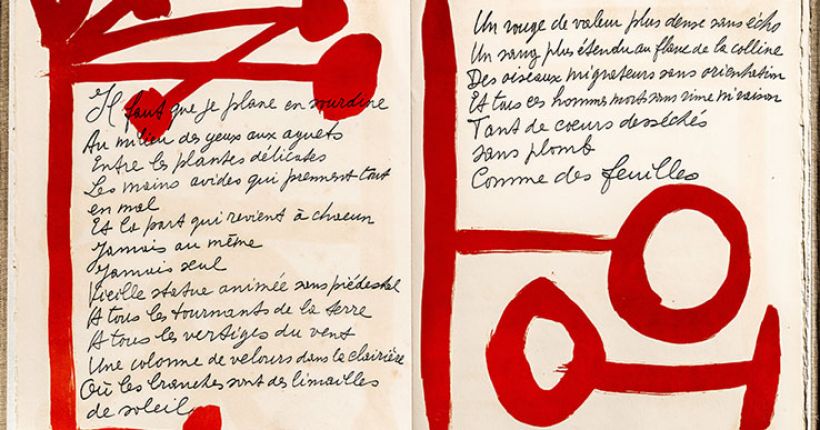 Il faut que je plane en sourdine
Au milieu des yeux aux aguets
Entre les plantes délicates
Les mains avides qui prennent tout
en mal
Et la part qui revient à chacun
Jamais au même
Jamais seul
Vieille statue animée sans piédestal
A tous les tournants de la terre
A tous les vertiges du vent
Une colonne de velours dans la clairière
Où les branches sont des limailles
de soleil
Un rouge de valeur plus dense sans écho
Un sang plus étendu au flanc de la colline
Des oiseaux migrateurs sans orientation
Et tous ces hommes morts sans rime ni raison
Tant de coeurs desséchés
sans plomb
Comme des feuilles